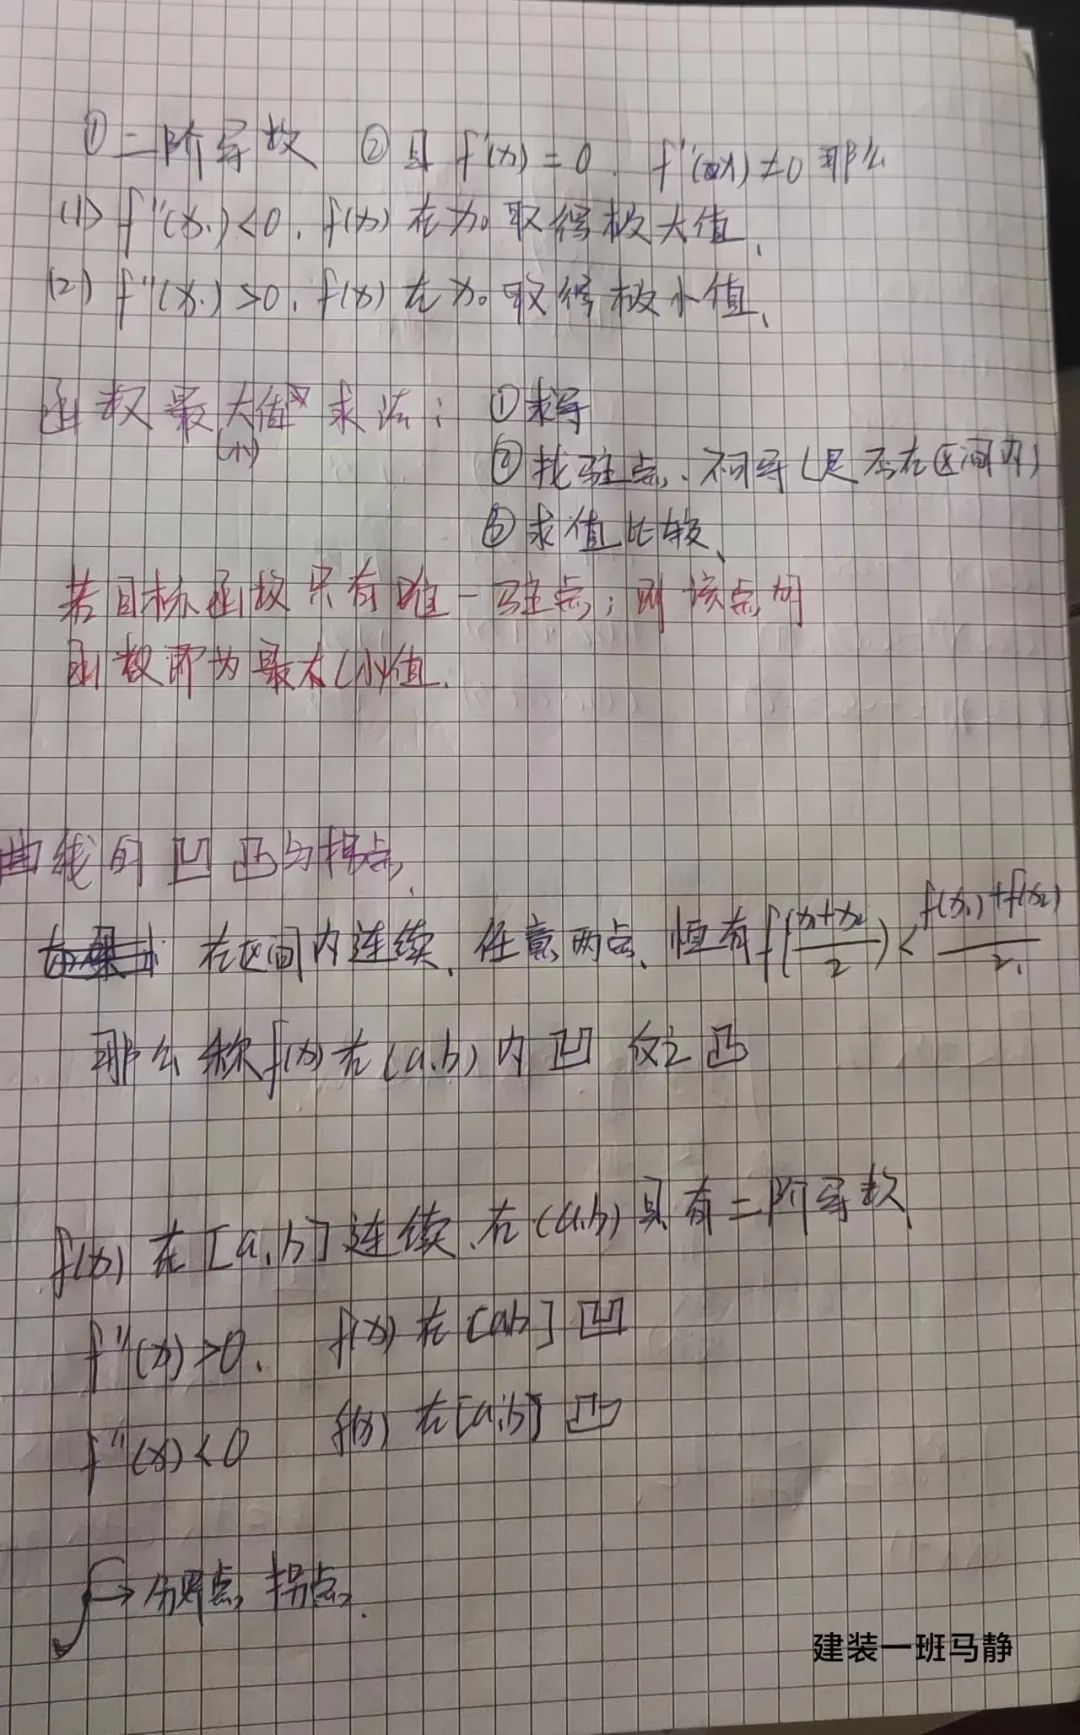 ①二阶导数 ②且 f'(x)=0. f''(x)≠0 那么
(1) f''(x.)<0, f(x) 在 x₀ 取得极大值.
(2) f''(x.)>0, f(x) 在 x₀ 取得极小值.
函数最大值求法: ①求导
(小)
②找驻点、不可导(是否在区间内)
③求值比较.
若目标函数只有唯一驻点; 则该点的
函数即为最大(小)值.
曲线的凹凸与拐点.
在区间内连续. 任意两点. 恒有 f(\frac{x₁+x₂}{2})<\frac{f(x₁)+f(x₂)}{2}.
那么称f(x)在(a.b)内凹 反之凸
f(x) 在[a.b]连续.在(a.b)具有二阶导数
f''(x)>0. f(x) 在[ab]凹
f''(x)<0 f(x) 在[a.b]凸
→分界点 拐点.
建装一班马静